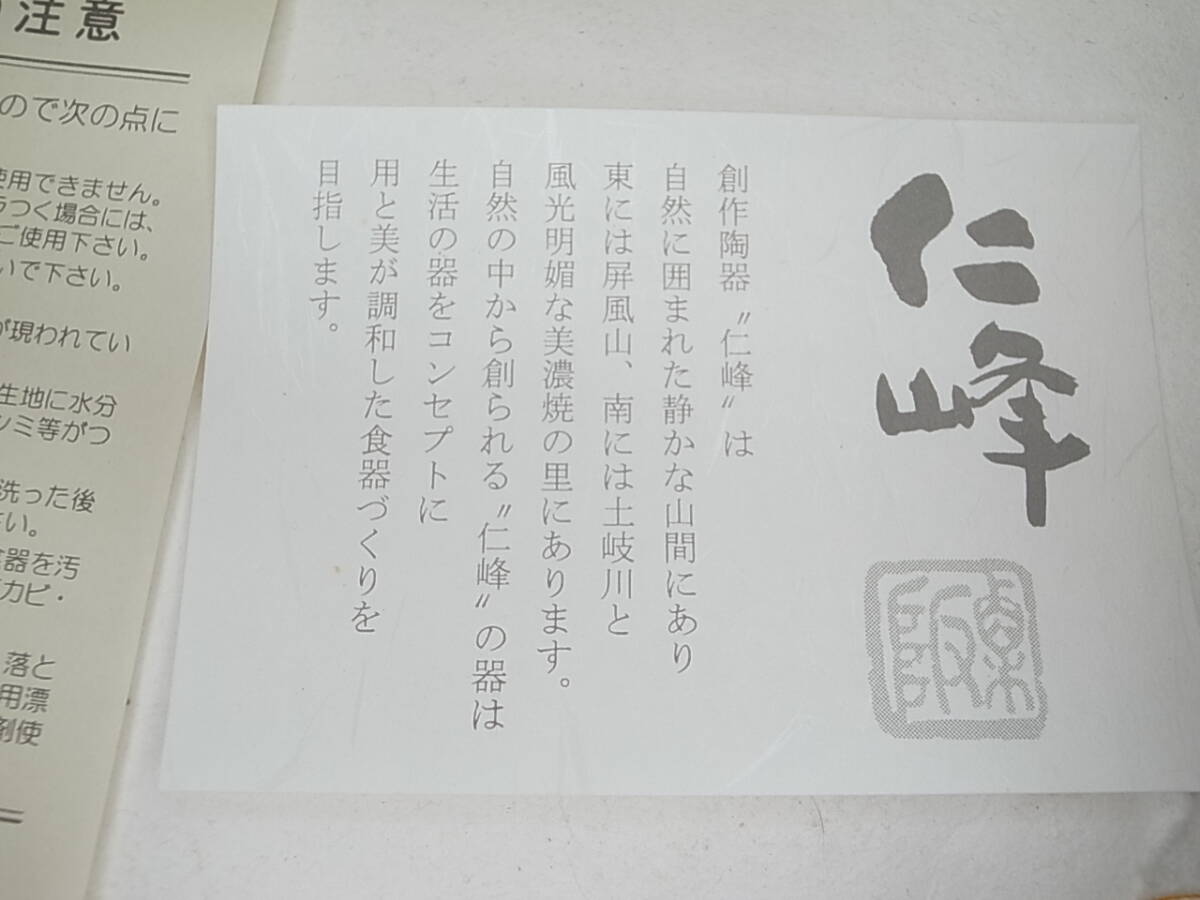 注意
ので次の点に
使用できません。
つく場合には、
ご使用下さい。
いで下さい。
が現われてい
生地に水分
シミ等がつ
洗った後
さい。
器を汚
カビ・
落と
用漂
剤使
仁峰
創作陶器〝仁峰〟は
自然に囲まれた静かな山間にあり
東には屏風山、南には土岐川と
風光明媚な美濃焼の里にあります。
自然の中から創られる〝仁峰〟の器は
生活の器をコンセプトに
用と美が調和した食器づくりを
目指します。